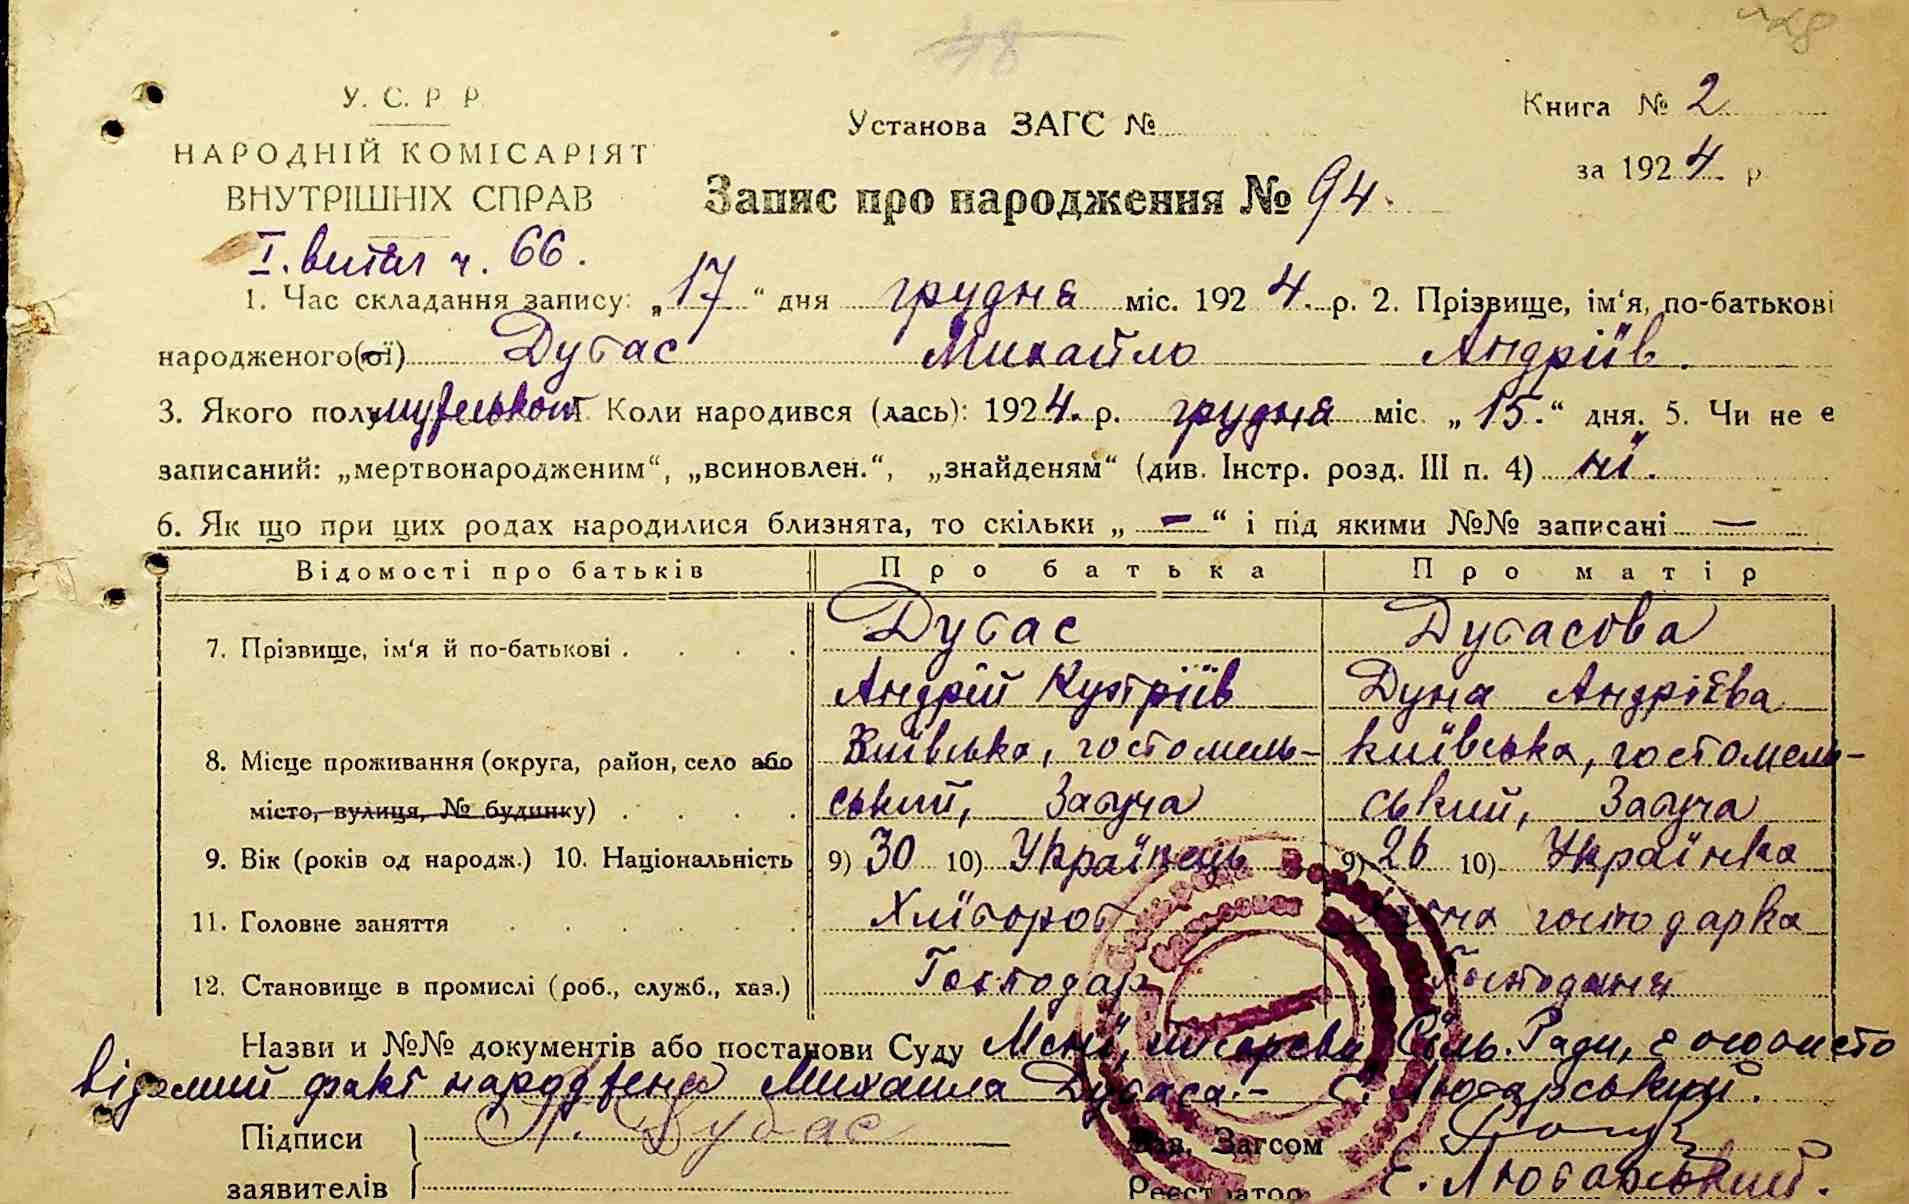 У. С. Р. Р.
НАРОДНІЙ КОМІСАРІЯТ
ВНУТРІШНІХ СПРАВ
Установа ЗАГС №
Книга № 2
за 1924 р
Запис про народження № 94.
І. витяг ч. 66.
1. Час складання запису: „17“ дня грудня міс. 1924. р. 2. Прізвище, ім‘я, по-батькові
народженого(ої) Дубас Михайло Андріїв.
3. Якого полу мужеської Коли народився (лась): 1924. р. грудня міс. „15.“ дня. 5. Чи не є
записаний: „мертвонародженим“, „всиновлен.“, „знайденям“ (див. Інстр. розд. III п. 4) ні.
6. Як що при цих родах народилися близнята, то скільки „ — “ і під якими №№ записані —
Відомості про батьків Про батька Про матір
7. Прізвище, ім‘я й по-батькові . . . . Дубас Дубасова
Андрій Андрієва
8. Місце проживання (округа, район, село або Київська, гостомель- київська, гостомель-
місто, вулиця, № будинку) . . . . ський, Забуча ський, Забуча
9. Вік (років од народж.) 10. Національність 9) 30 10) Українець 9) 26 10) Українка
11. Головне заняття . . . . . . Хлібороб Хатня господарка
12. Становище в промислі (роб., служб., хаз.) Господар Господиня
Назви и №№ документів або постанови Суду Мені, писареві Сіль. Ради, є особисто
відомий факт народження Михайла Дубаса.– Є. Любарський.
Підписи А. Дубас Зав. Загсом
заявителів Реєстратор Є. Любарський.